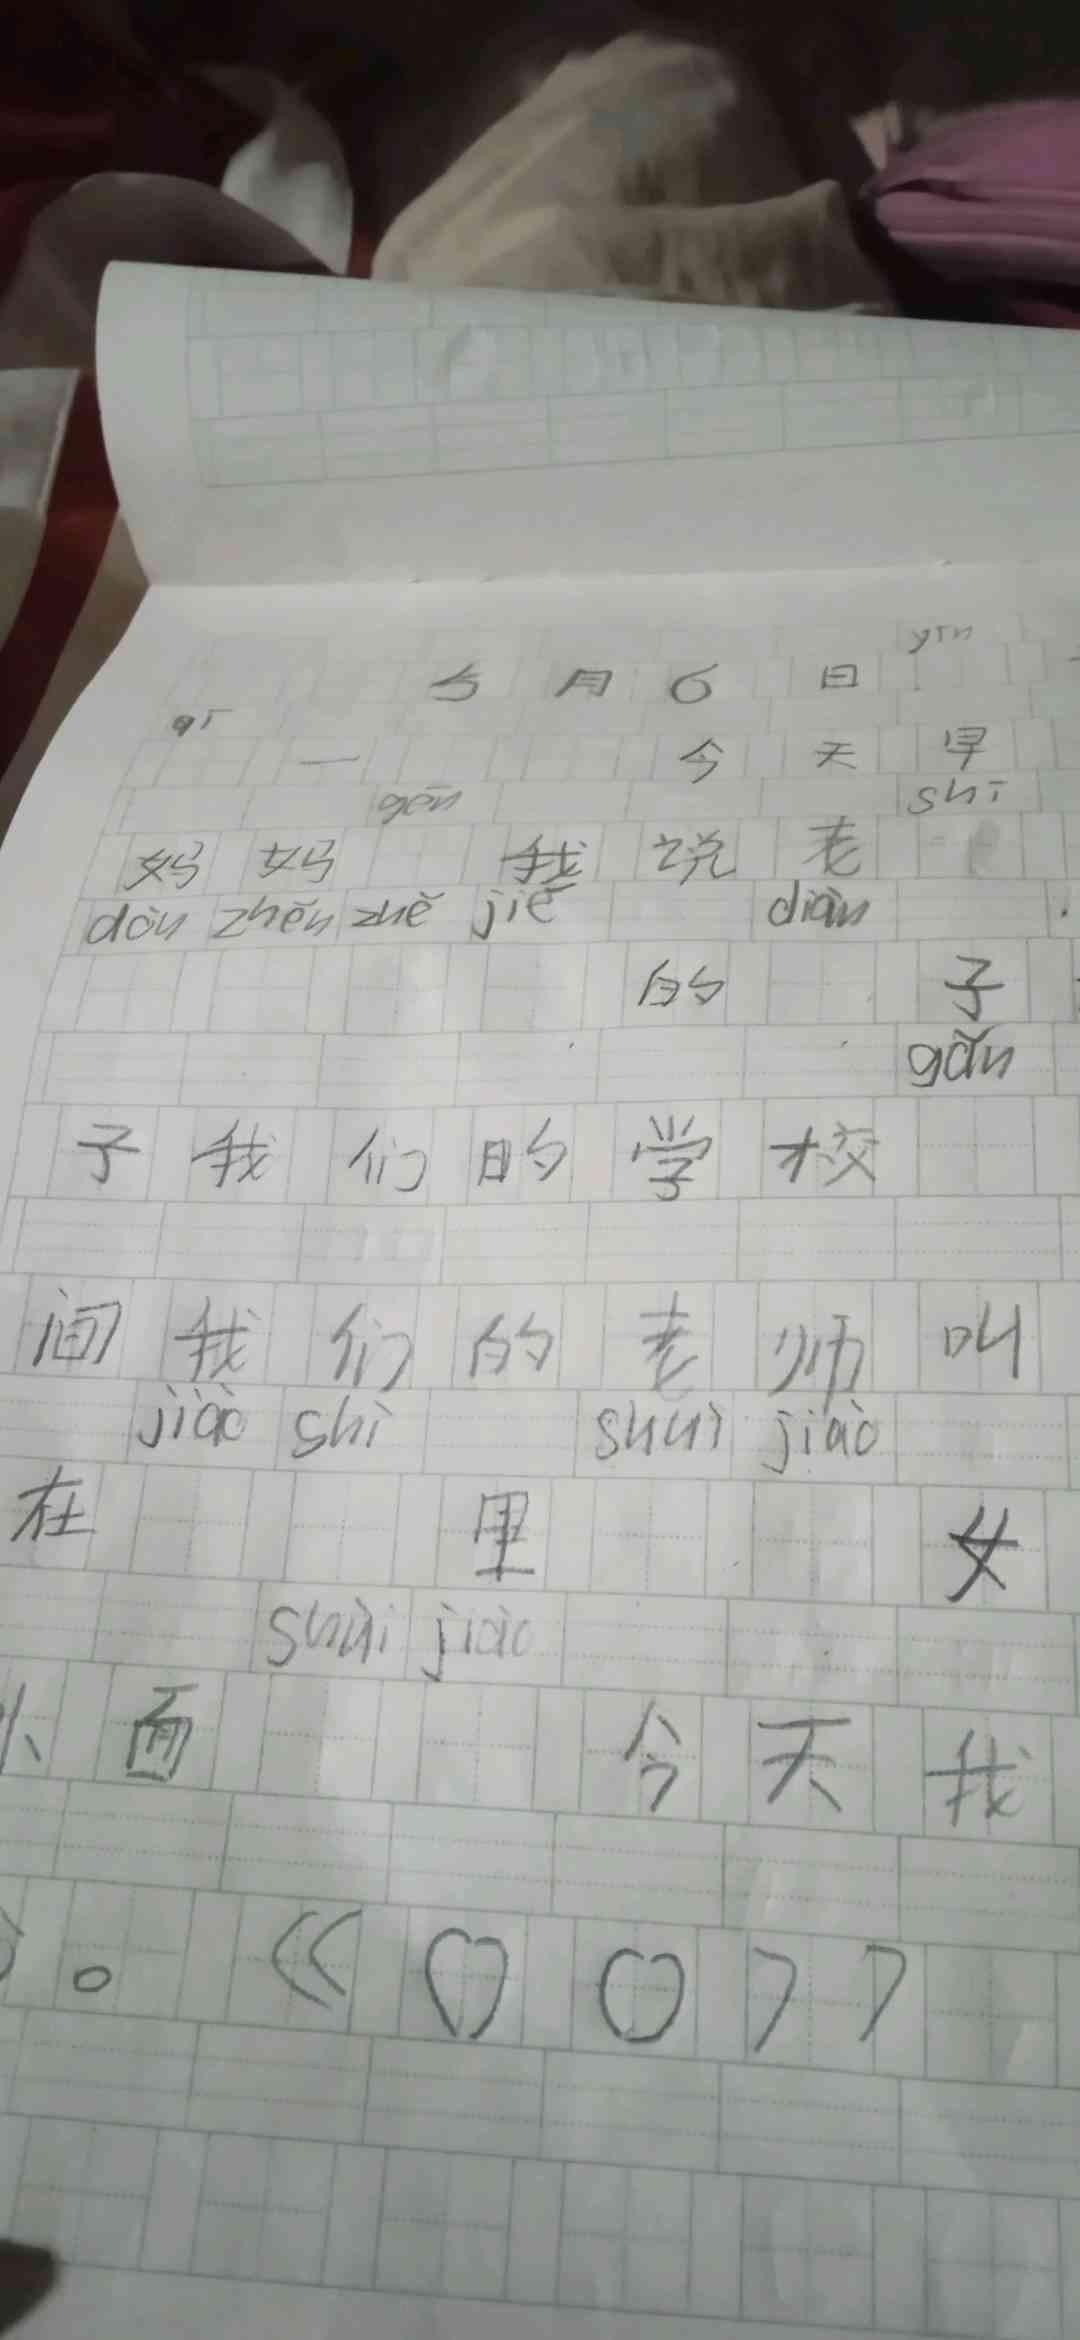 5月6日 yīn
qī
一 今天早
gēn shī
妈妈 我说老
dòn zhěn zhě jiě diàn
的 子
gǎn
子我们的学校
间我们的老师叫
jiào shì shuì jiào
在 里 女
shuì jiào
面 今天我
。《 》